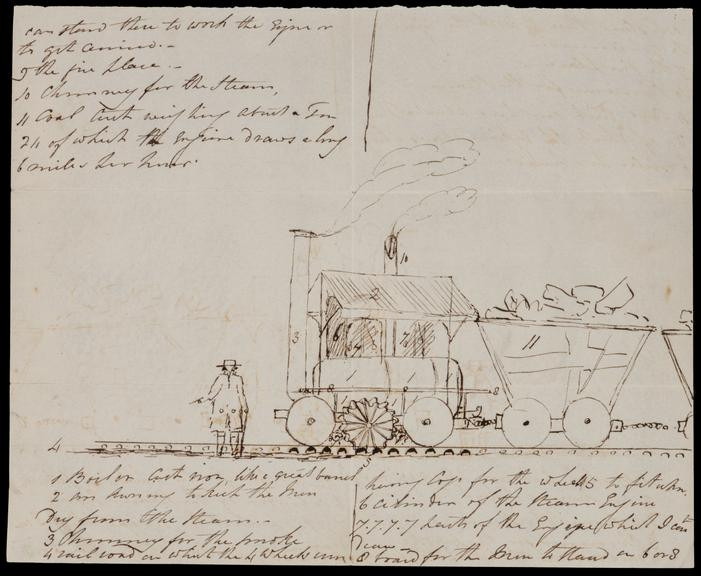 can stand there to work the Engine or
to get coming. -
9 the fire place. -
10 Chimney for the Steam,
11 Coal Cart weighing about a Ton
24 of which the Engine draws along
6 miles per hour.
10
2
3
6
7
8
11
8
1
4
5
1 Boiler Cast iron, like a great barrel
2 an Awning to keep the Men
Dry from the steam. -
3 Chimney for the smoke
4 rail road on which the 4 Wheels run
having Cogs for the wheels to fit in.
6 cilinder of the Steam Engine
7.7.7.7 parts of the Engine (which I can't
Draw -
8 board for the Men to stand on 6 or 8